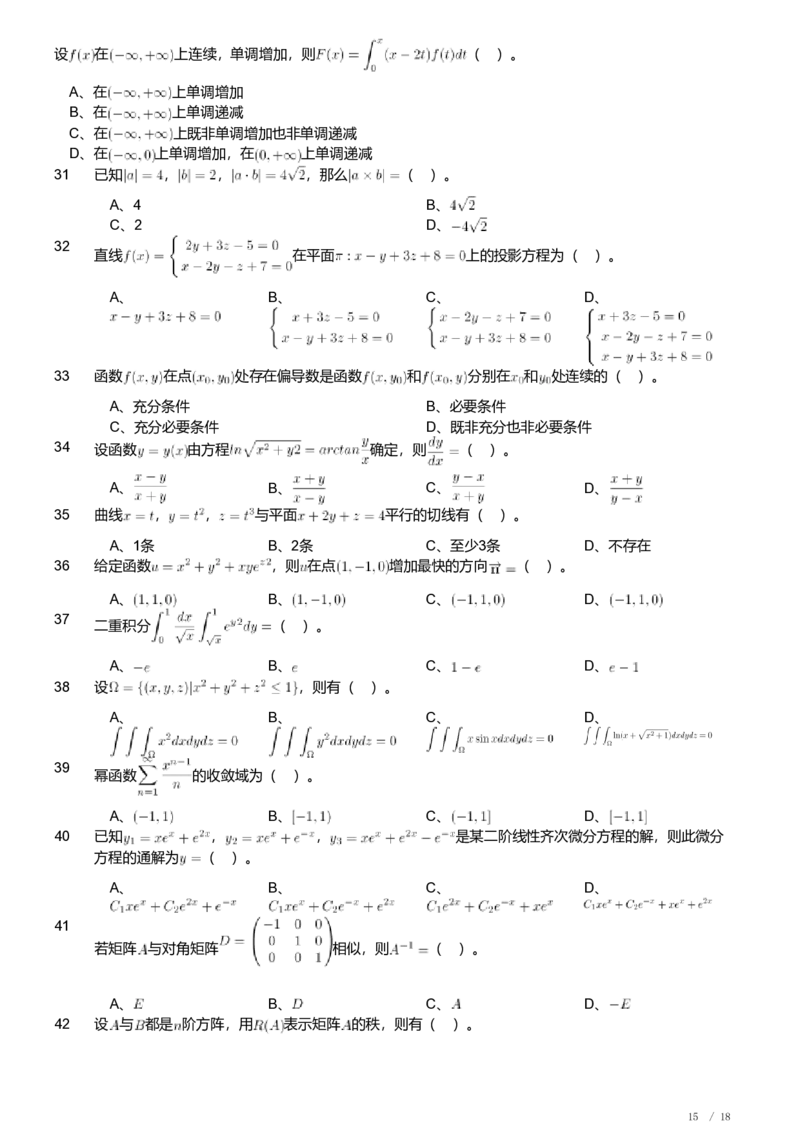 设f(x)在(−∞,+∞)上连续，单调增加，则F(x) = ∫₀ˣ (x − 2t)f(t)dt（　）。
A、在(−∞,+∞)上单调增加
B、在(−∞,+∞)上单调递减
C、在(−∞,+∞)上既非单调增加也非单调递减
D、在(−∞,0)上单调增加，在(0,+∞)上单调递减
31 已知|a| = 4，|b| = 2，|a·b| = 4√2，那么|a × b| =（　）。
A、4 B、4√2
C、2 D、−4√2
32 直线f(x) = { 2y + 3z − 5 = 0; x − 2y − z + 7 = 0 在平面π : x − y + 3z + 8 = 0上的投影方程为（　）。
A、 B、 C、 D、
x − y + 3z + 8 = 0 { x + 3z − 5 = 0; x − y + 3z + 8 = 0 { x − 2y − z + 7 = 0; x − y + 3z + 8 = 0 { x + 3z − 5 = 0; x − 2y − z + 7 = 0; x − y + 3z + 8 = 0
33 函数f(x,y)在点(x₀,y₀)处存在偏导数是函数f(x,y₀)和f(x₀,y)分别在x₀和y₀处连续的（　）。
A、充分条件 B、必要条件
C、充分必要条件 D、既非充分也非必要条件
34 设函数y = y(x)由方程ln√(x² + y2) = arctan y/x 确定，则 dy/dx =（　）。
A、(x − y)/(x + y) B、(x + y)/(x − y) C、(y − x)/(x + y) D、(x + y)/(y − x)
35 曲线x = t，y = t²，z = t³与平面x + 2y + z = 4平行的切线有（　）。
A、1条 B、2条 C、至少3条 D、不存在
36 给定函数u = x² + y² + xye^{z2}，则u在点(1,−1,0)增加最快的方向 n⃗ =（　）。
A、(1,1,0) B、(1,−1,0) C、(−1,1,0) D、(−1,1,0)
37 二重积分∫₀¹ dx/√x ∫_{√x}^1 e^{y2}dy =（　）。
A、−e B、e C、1 − e D、e − 1
38 设Ω = {(x,y,z)|x² + y² + z² ≤ 1}，则有（　）。
A、 B、 C、 D、
∫∫∫_Ω x²dxdydz = 0 ∫∫∫_Ω y²dxdydz = 0 ∫∫∫_Ω x sin xdxdydz = 0 ∫∫∫_Ω ln(x + √(x² + 1))dxdydz = 0
39 幂函数∑_{n=1}^∞ x^{n−1}/n 的收敛域为（　）。
A、(−1,1) B、[−1,1) C、(−1,1] D、[−1,1]
40 已知y₁ = xeˣ + e^{2x}，y₂ = xeˣ + e^{−x}，y₃ = xeˣ + e^{2x} − e^{−x}是某二阶线性齐次微分方程的解，则此微分
方程的通解为y =（　）。
A、 B、 C、 D、
C₁xeˣ + C₂e^{2x} + e^{−x} C₁xeˣ + C₂e^{−x} + e^{2x} C₁e^{2x} + C₂e^{−x} + xeˣ C₁xeˣ + C₂e^{−x} + xeˣ + e^{2x}
41 若矩阵A与对角矩阵D = (−1 0 0; 0 1 0; 0 0 1)相似，则A⁻¹ =（　）。
A、E B、D C、A D、−E
42 设A与B都是n阶方阵，用R(A)表示矩阵A的秩，则有（　）。
15 / 18